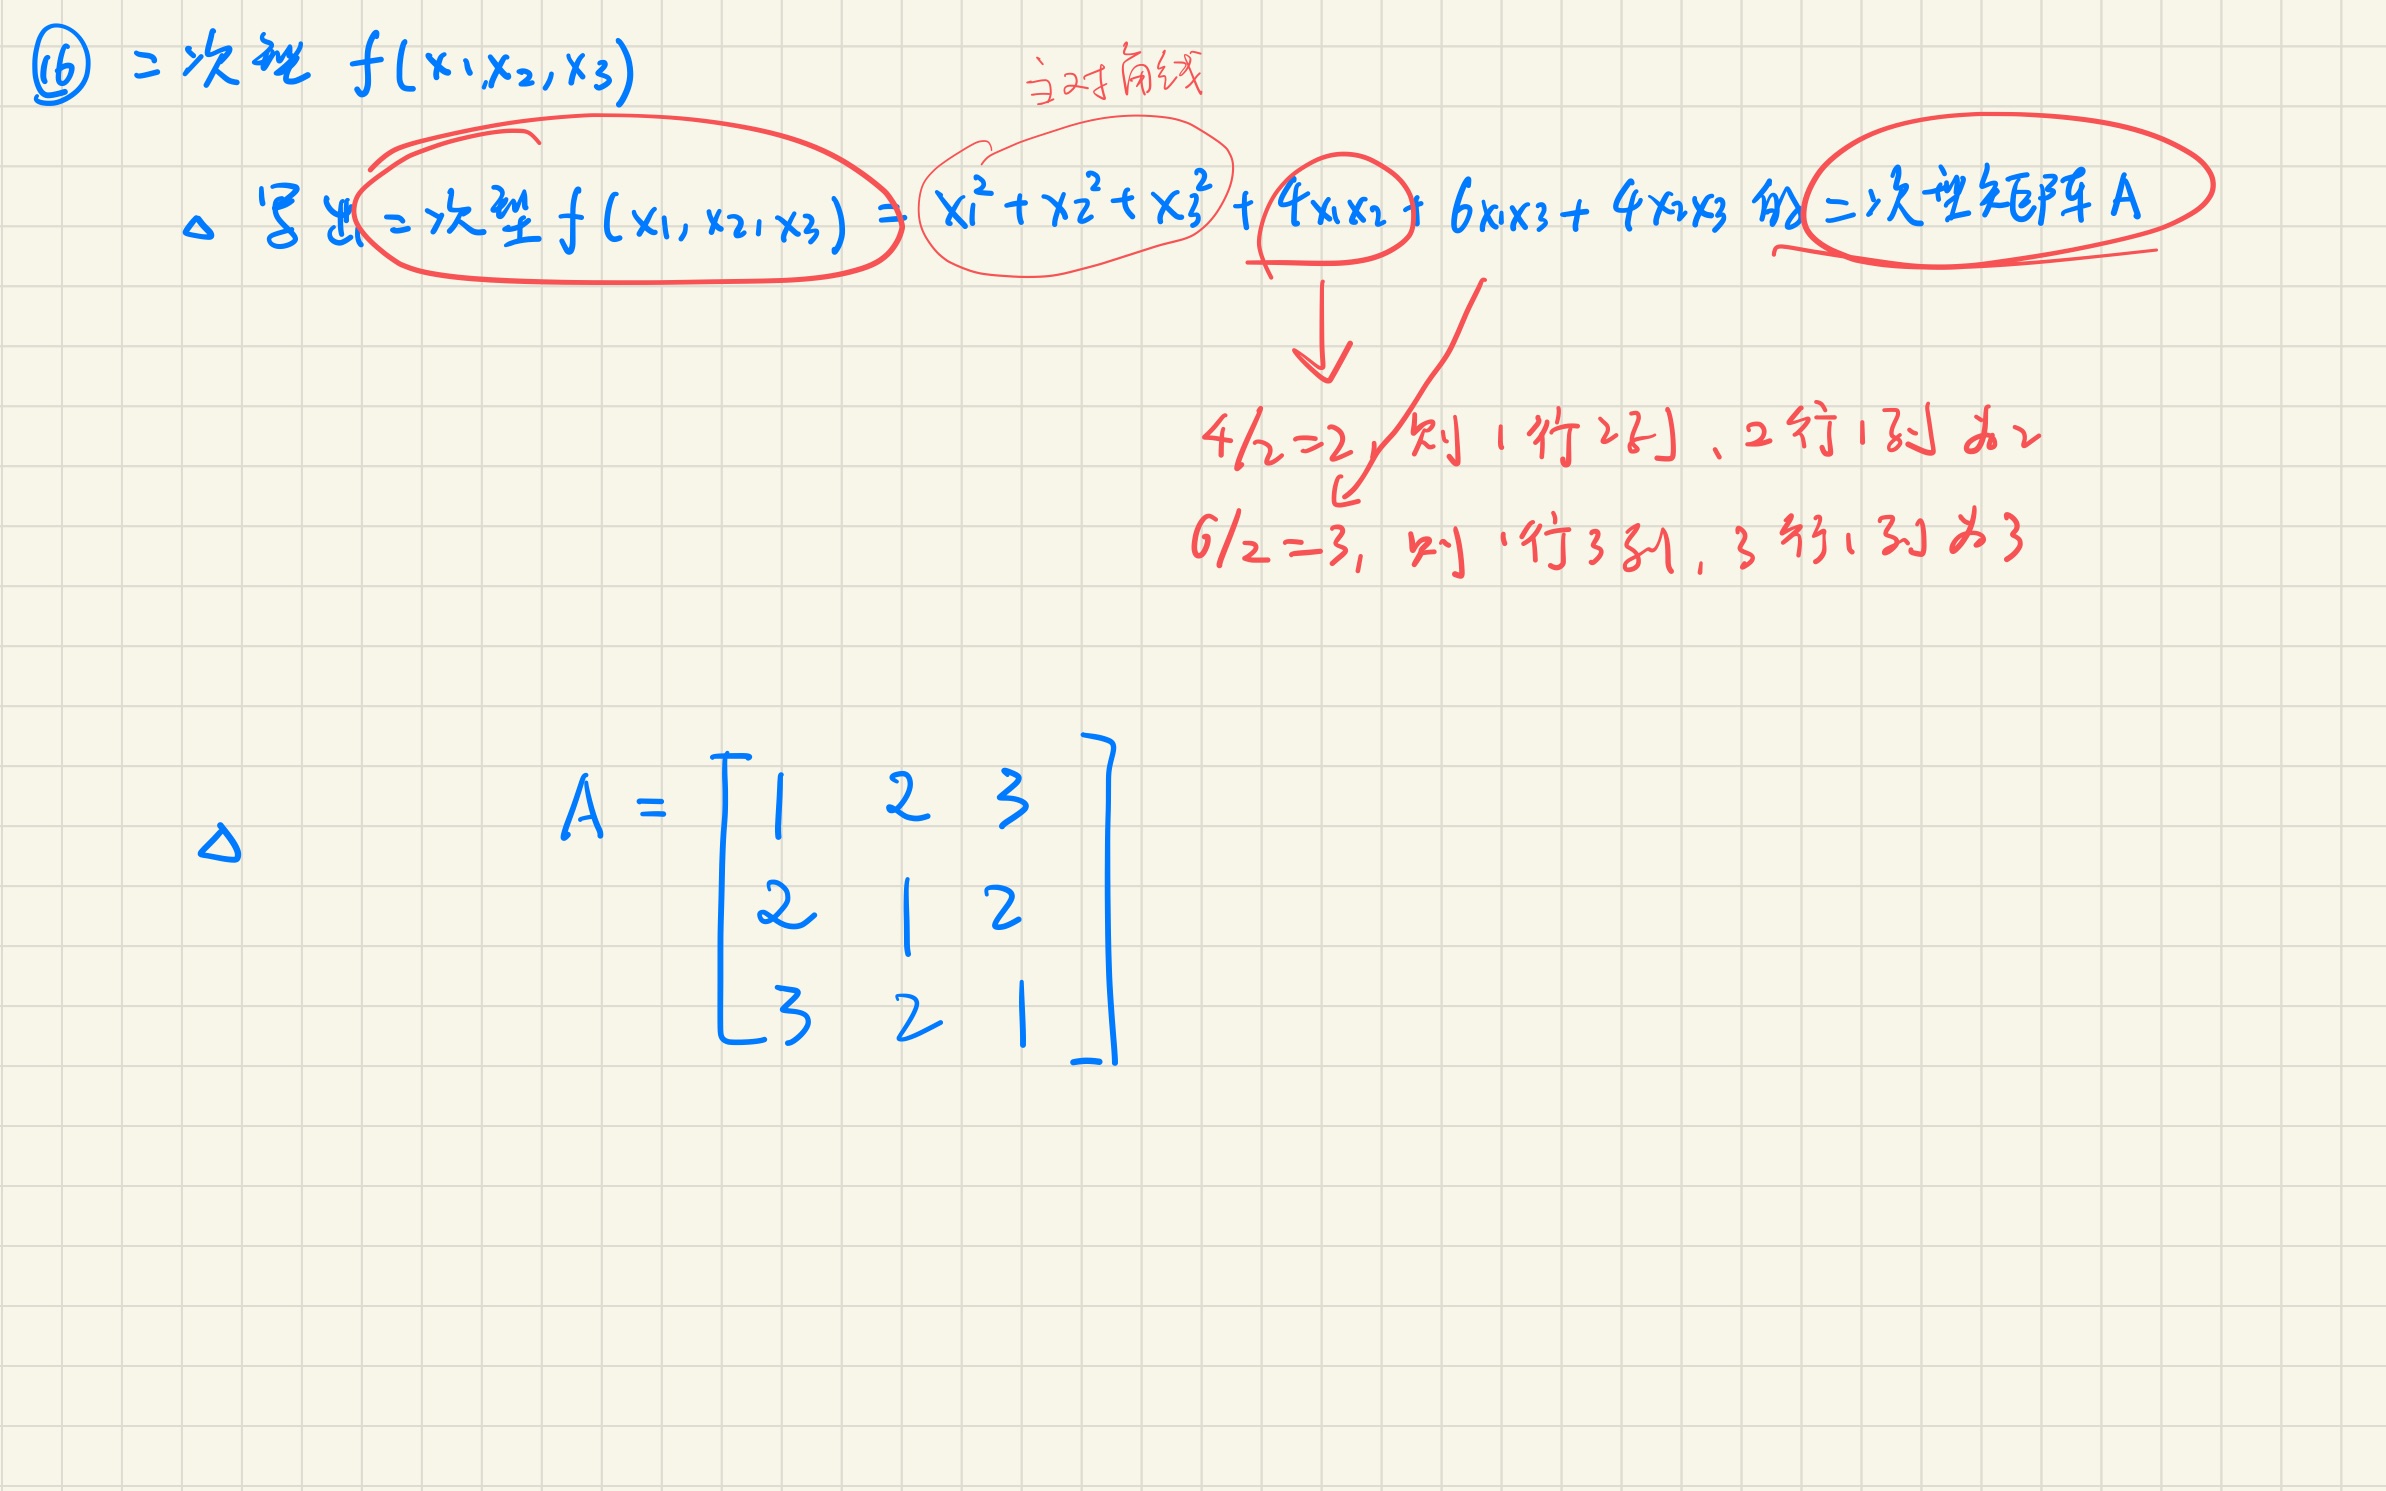 ⑥ 二次型 f(x1,x2,x3)
主对角线
△ 写出二次型 f(x1,x2,x3) = x1² + x2² + x3² + 4x1x2 + 6x1x3 + 4x2x3 的二次型矩阵 A
4/2=2, 则1行2列、2行1列为2
6/2=3, 则1行3列, 3行1列为3
△ A = [ 1 2 3
2 1 2
3 2 1 ]